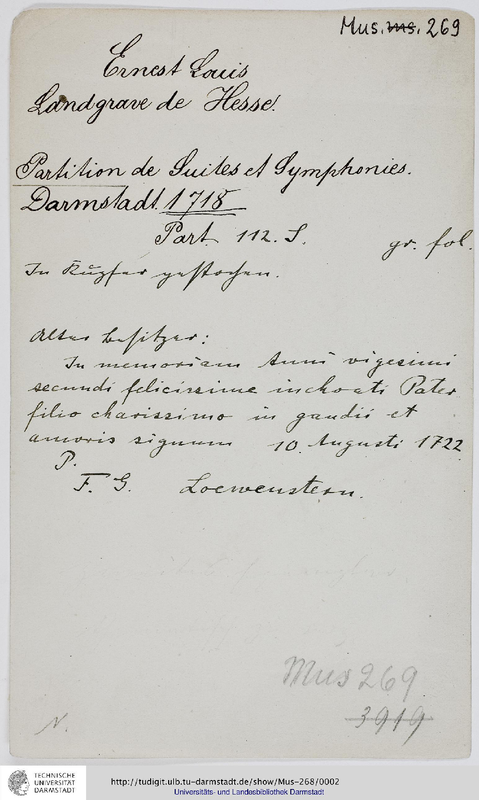 Mus. ms. 269
Ernest Louis
Landgrave de Hesse.
Partition de Suites et Symphonies.
Darmstadt. 1718
Part 112. S. gr. fol.
In Kupfer gestochen.
Alter besitzer:
In memoriam Anni vigesimi
secundi felicissime inchoati Pater
filio charissimo in gaudii et
amoris signum 10. Augusti 1722
P.
F. G. Loewenstern.
Mus 269
3919
N.
TECHNISCHE
UNIVERSITÄT
DARMSTADT
http://tudigit.ulb.tu-darmstadt.de/show/Mus-268/0002
Universitäts- und Landesbibliothek Darmstadt